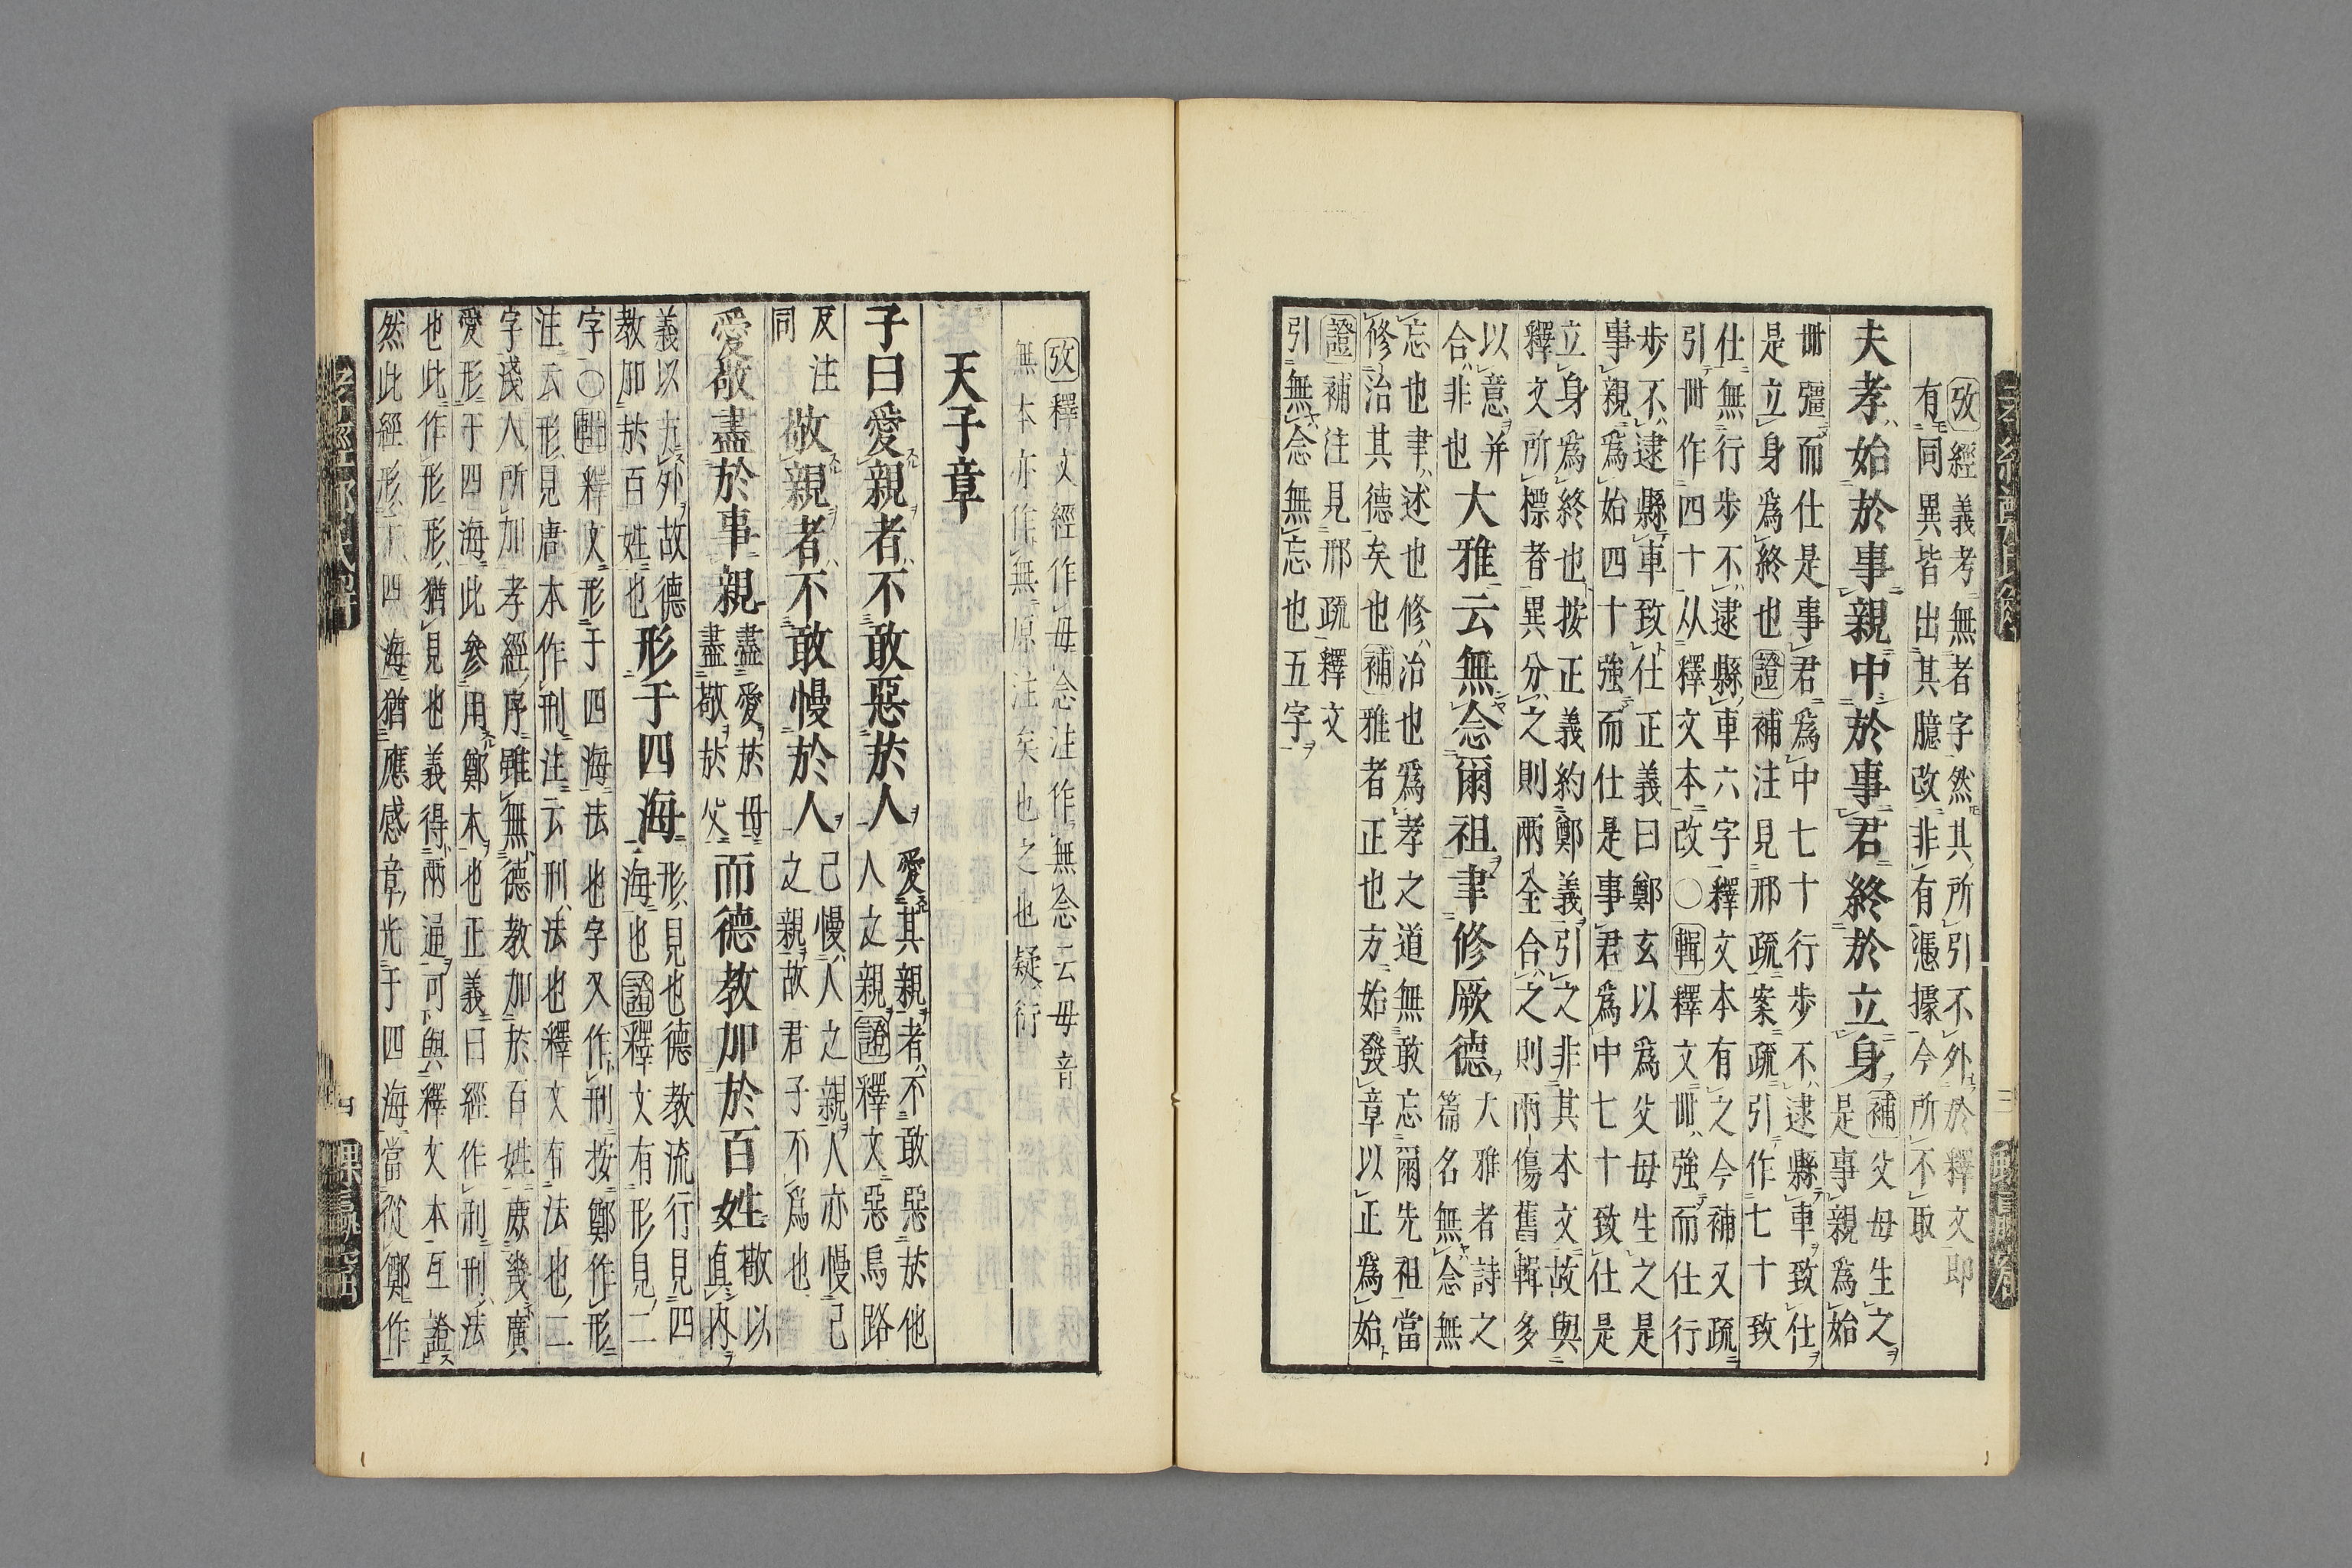 攷經義考無者字然其所引不外於釋文即
有同異皆出其臆改非有憑據今所不取
夫孝始於事親中於事君終於立身
補父母生之
是事親爲始
丗彊而仕是事君爲中七十行步不逮縣車致仕
是立身爲終也證補注見邢疏案疏引作七十致
仕無行步不逮縣車六字釋文本有之今補又疏
引丗作四十从釋文本改〇輯釋文丗強而仕行
步不逮縣車致仕正義曰鄭玄以爲父母生之是
事親爲始四十強而仕是事君爲中七十致仕是
立身爲終也按正義約鄭義引之非其本文故與
釋文所標者異分之則兩全合之則兩傷舊輯多
以意并
合非也
大雅云無念爾祖聿修厥德
大雅者詩之
篇名無念無
忘也聿述也修治也爲孝之道無敢忘爾先祖當
修治其德矣也補雅者正也方始發章以正爲始
證補注見邢疏釋文
引無念無忘也五字
攷釋文經作毋念注作無念云毋音
無本亦作無原注矣也之也疑衍
天子章
子曰愛親者不敢惡於人
愛其親者不敢惡於他
人之親證釋文惡烏路
反注
同
敬親者不敢慢於人
己慢人之親人亦慢己
之親故君子不爲也
愛敬盡於事親
盡愛於母
盡敬於父
而德教加於百姓
敬以
直內
義以方外故德
教加於百姓也
形于四海
形見也德教流行見四
海也證釋文有形見二
字〇輯釋文形于四海法也字又作刑按鄭作形
注云形見唐本作刑注云刑法也釋文有法也二
字淺人所加孝經序雖無德教加於百姓庶幾廣
愛形于四海此參用鄭本也正義曰經作刑刑法
也此作形形猶見也義得兩通可與釋文本互證
然此經形于四海猶應感章光于四海當從鄭作